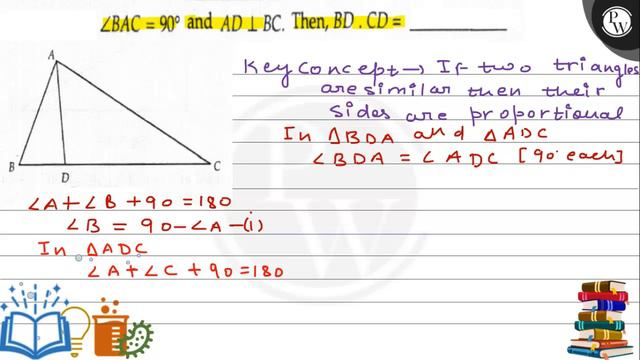 ∠BAC = 90° and AD ⊥ BC. Then, BD . CD = ________
PW
A
B
D
C
Key concept → If two triangles
are similar then their
sides are proportional
In △BDA and △ADC
∠BDA = ∠ADC [90° each]
∠A + ∠B + 90 = 180
∠B = 90 - ∠A - (i)
In △ADC
∠A + ∠C + 90 = 180